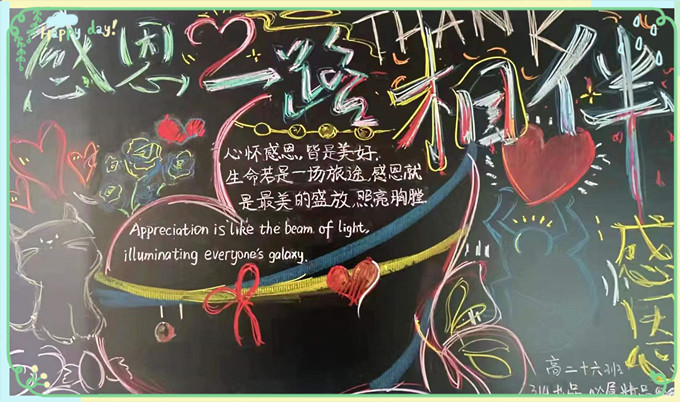 Happy day!
THANK
感恩一路相伴
心怀感恩,皆是美好,
生命若是一场旅途,感恩就
是最美的盛放,照亮胸膛
Appreciation is like the beam of light,
illuminating everyone's galaxy.
感恩
高二十六班